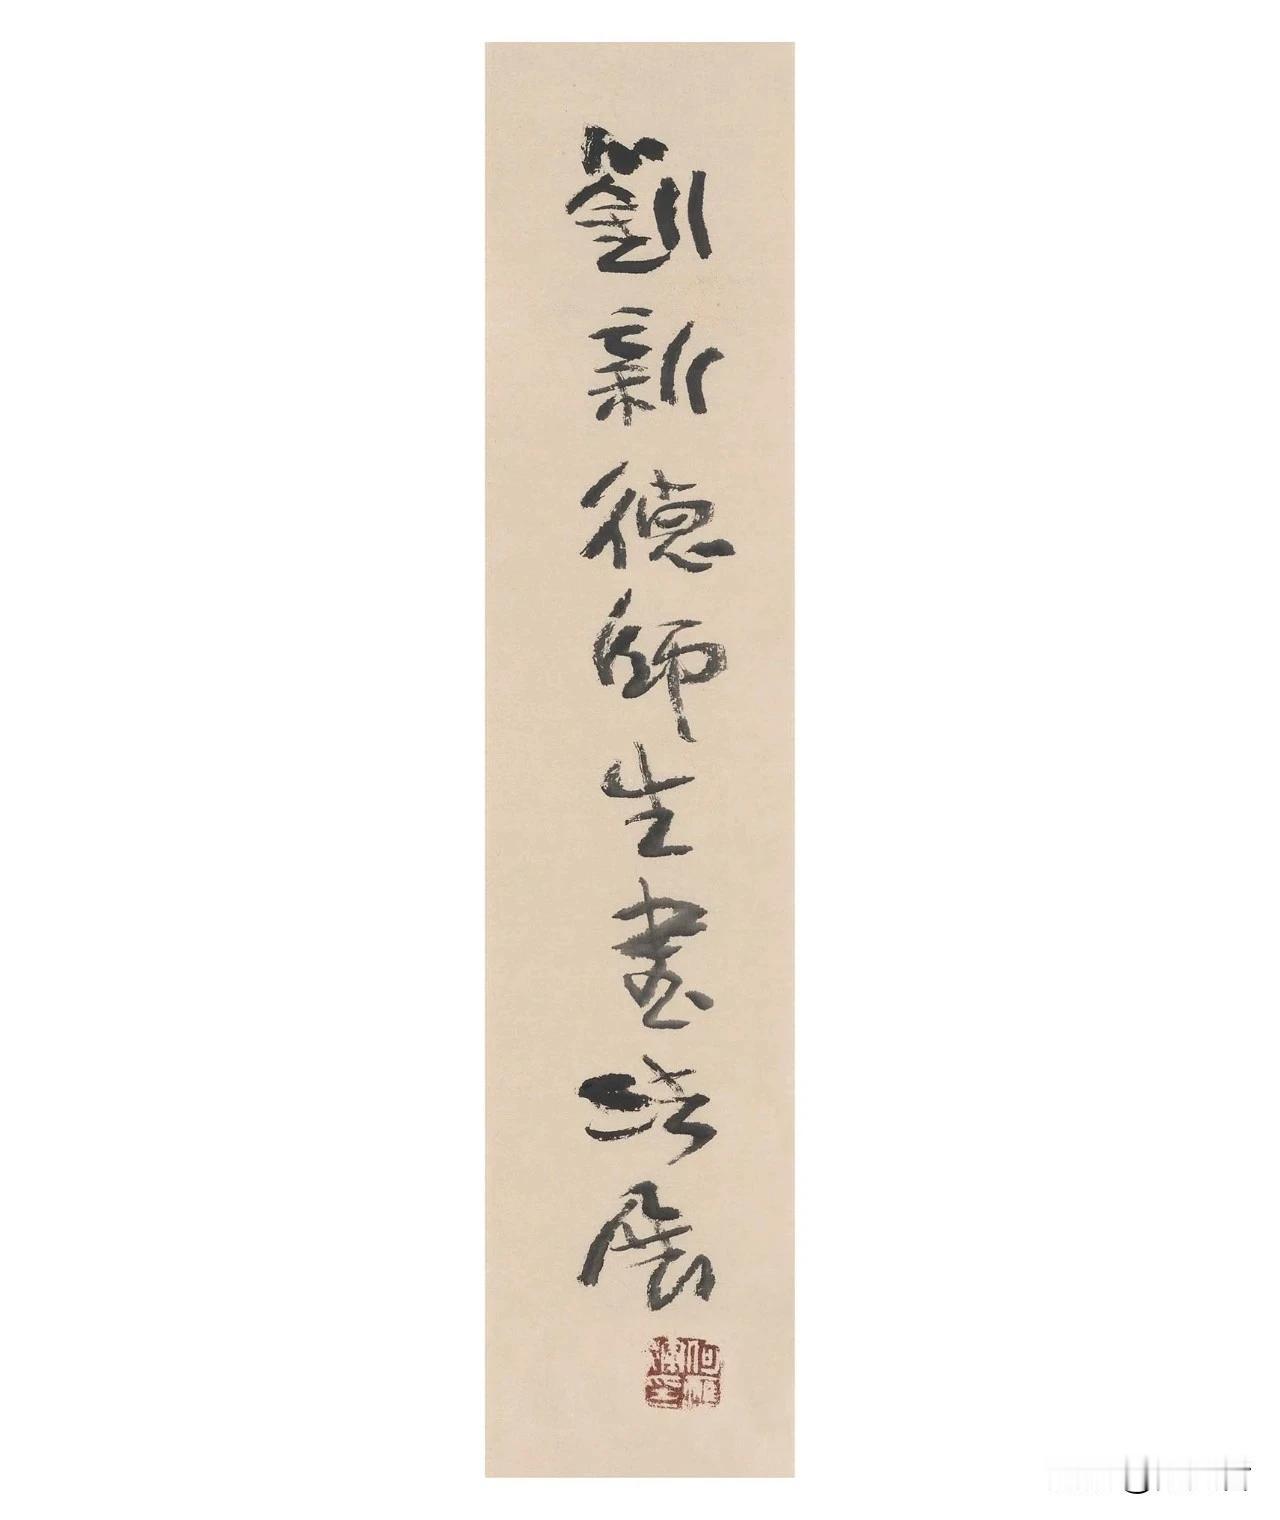 劉新德師生書法展